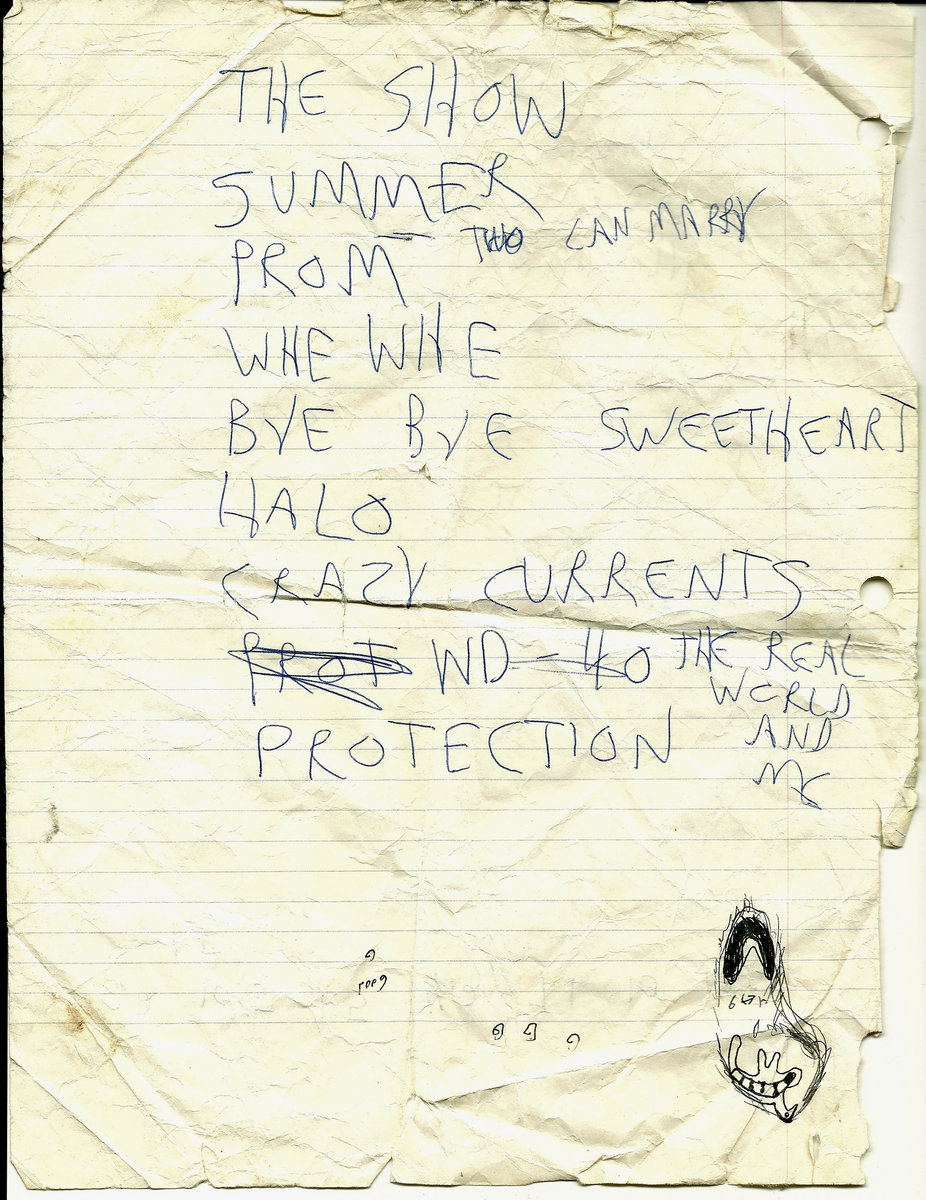 THE SHOW
SUMMER
TWO CAN MARRY
PROM
WHE WHE
BYE BYE SWEETHEART
HALO
CRAZY CURRENTS
WD-40 THE REAL
WORLD
PROTECTION AND
ME